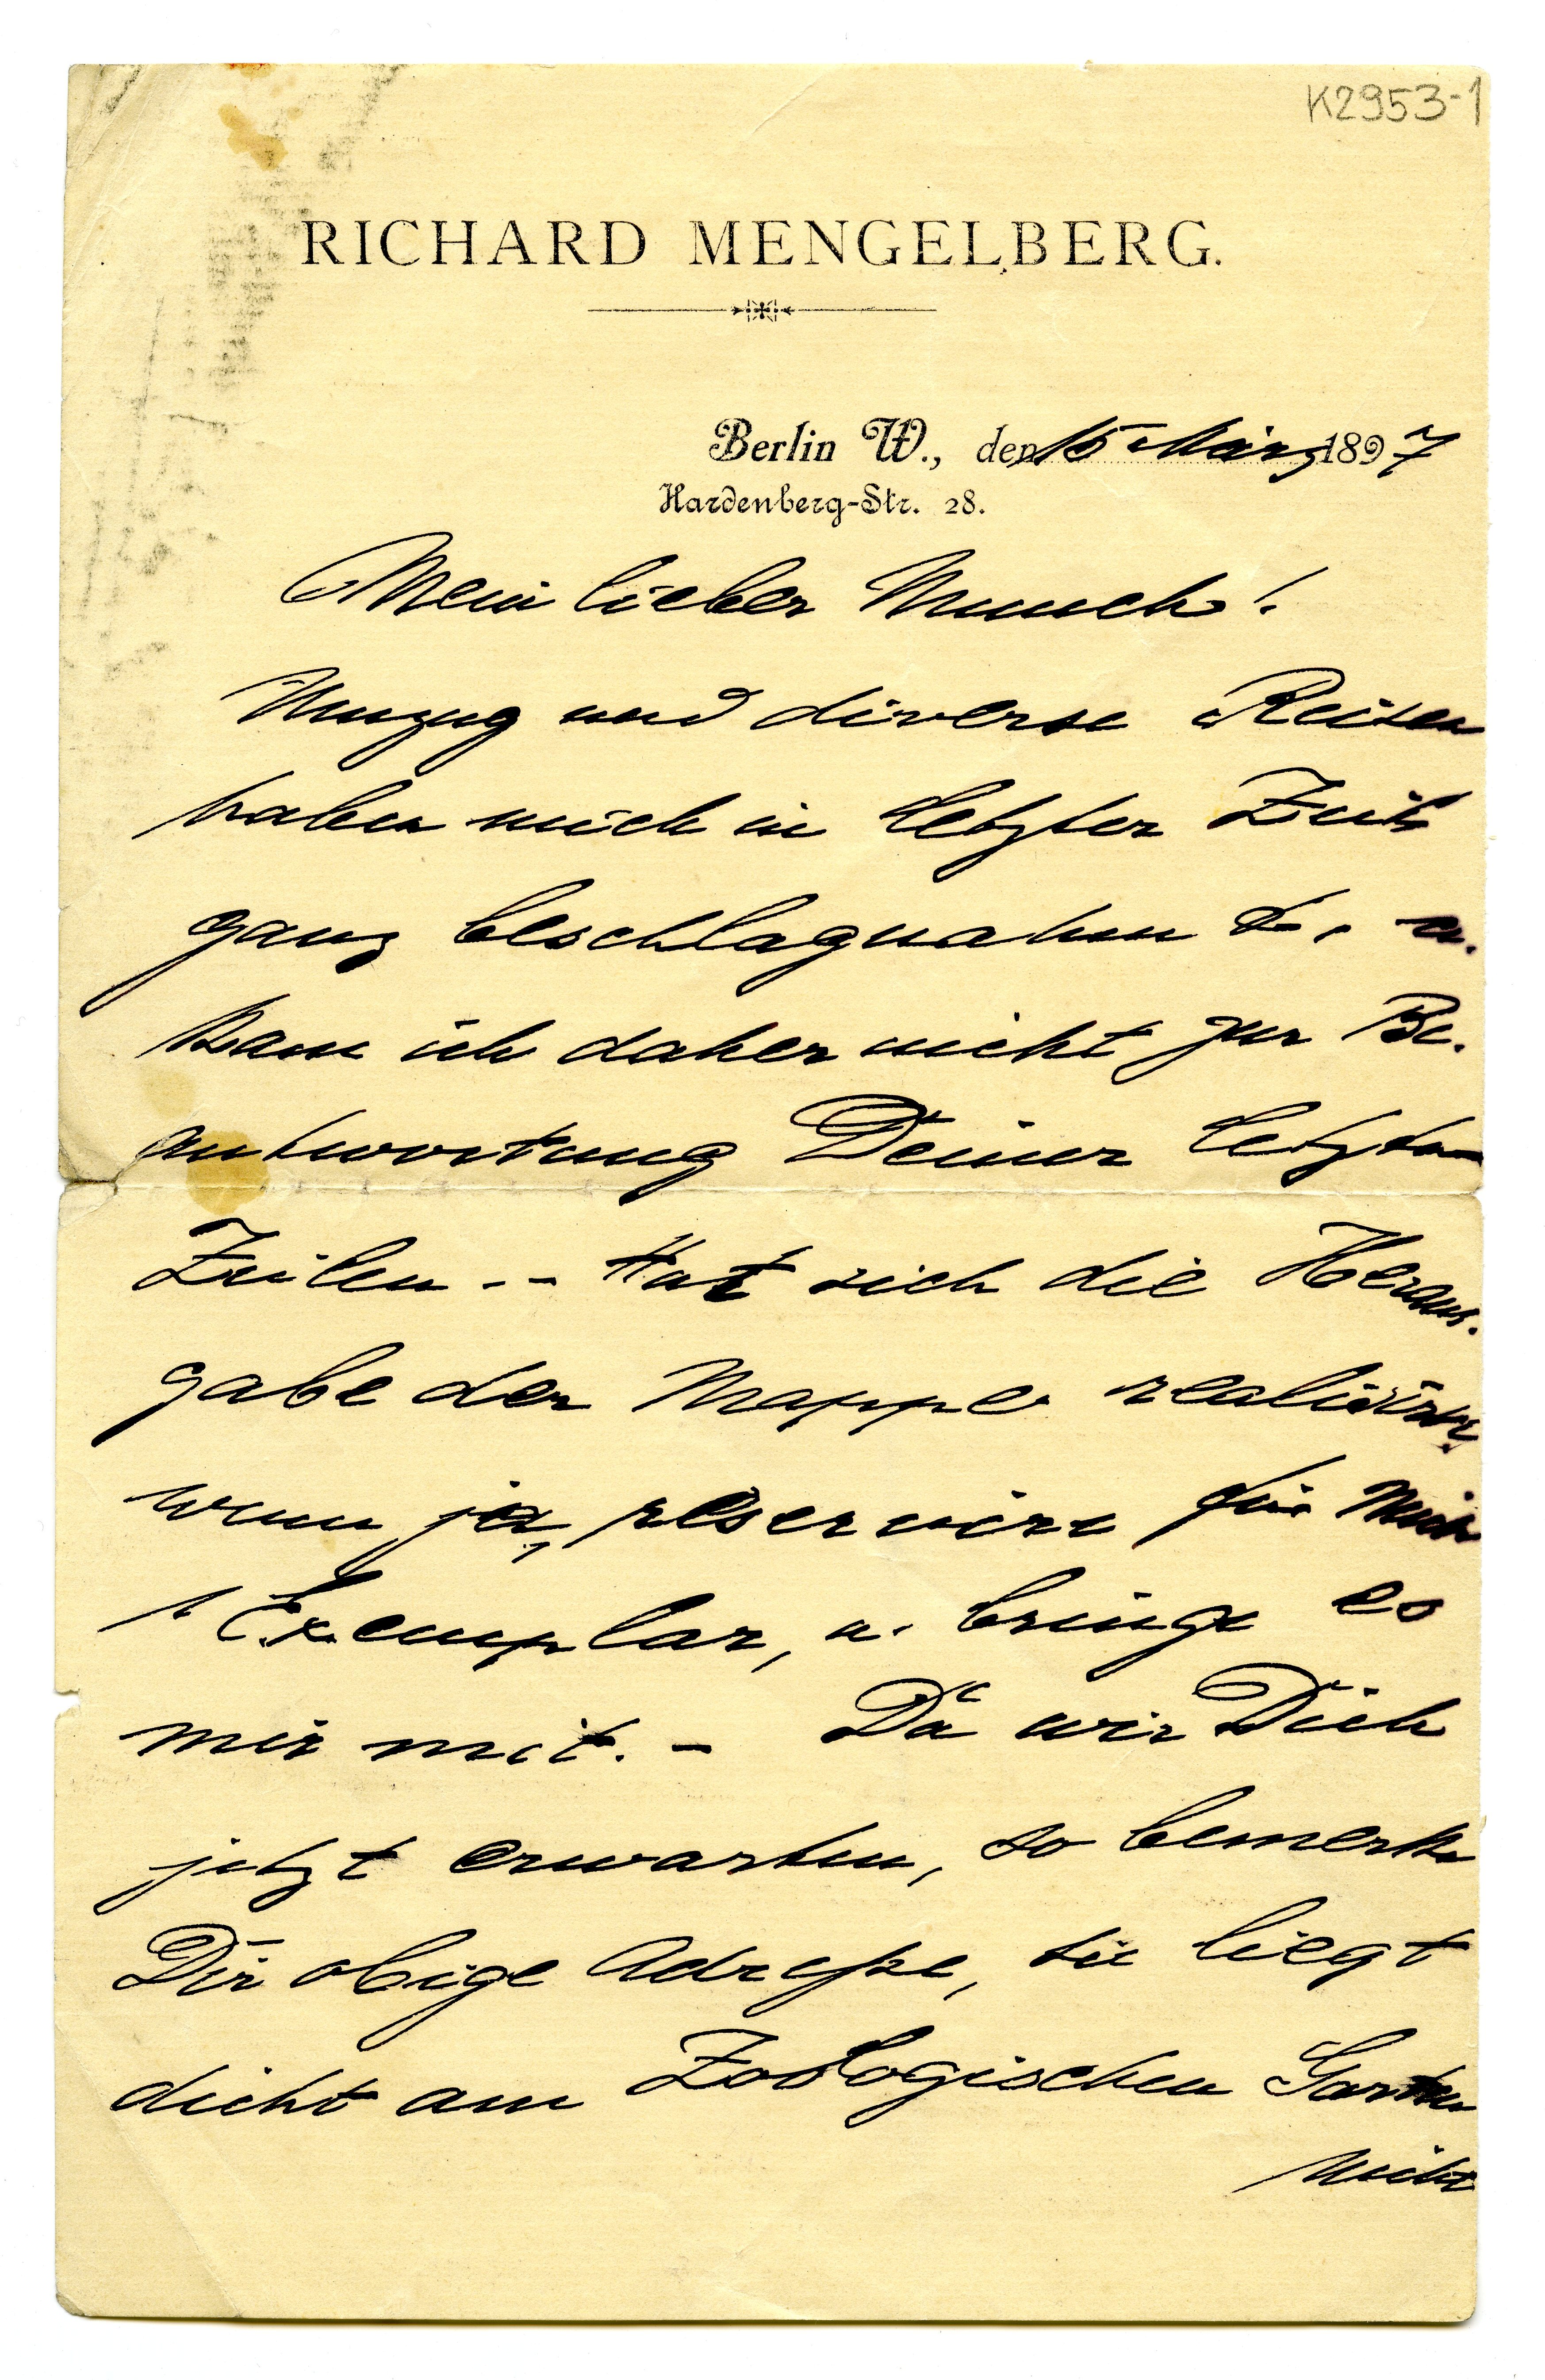 K2953-1
RICHARD MENGELBERG.
Berlin W., den 15 März 1897
Hardenberg-Str. 28.
Mein lieber Munch!
Umzug und diverse Reisen
haben mich in letzter Zeit
ganz beschlagnahmt, u.
kam ich daher nicht zur Be-
antwortung Deiner letzten
Zeilen. -- Hat sich die Heraus-
gabe der Mappe realisirt,
wenn ja, reservire für mich
1 Exemplar, u. bringe es
mir mit. - Da wir Dich
jetzt erwarten, so bemerke
Dir obige Adresse, sie liegt
dicht am Zoologischen Garten
Nicht